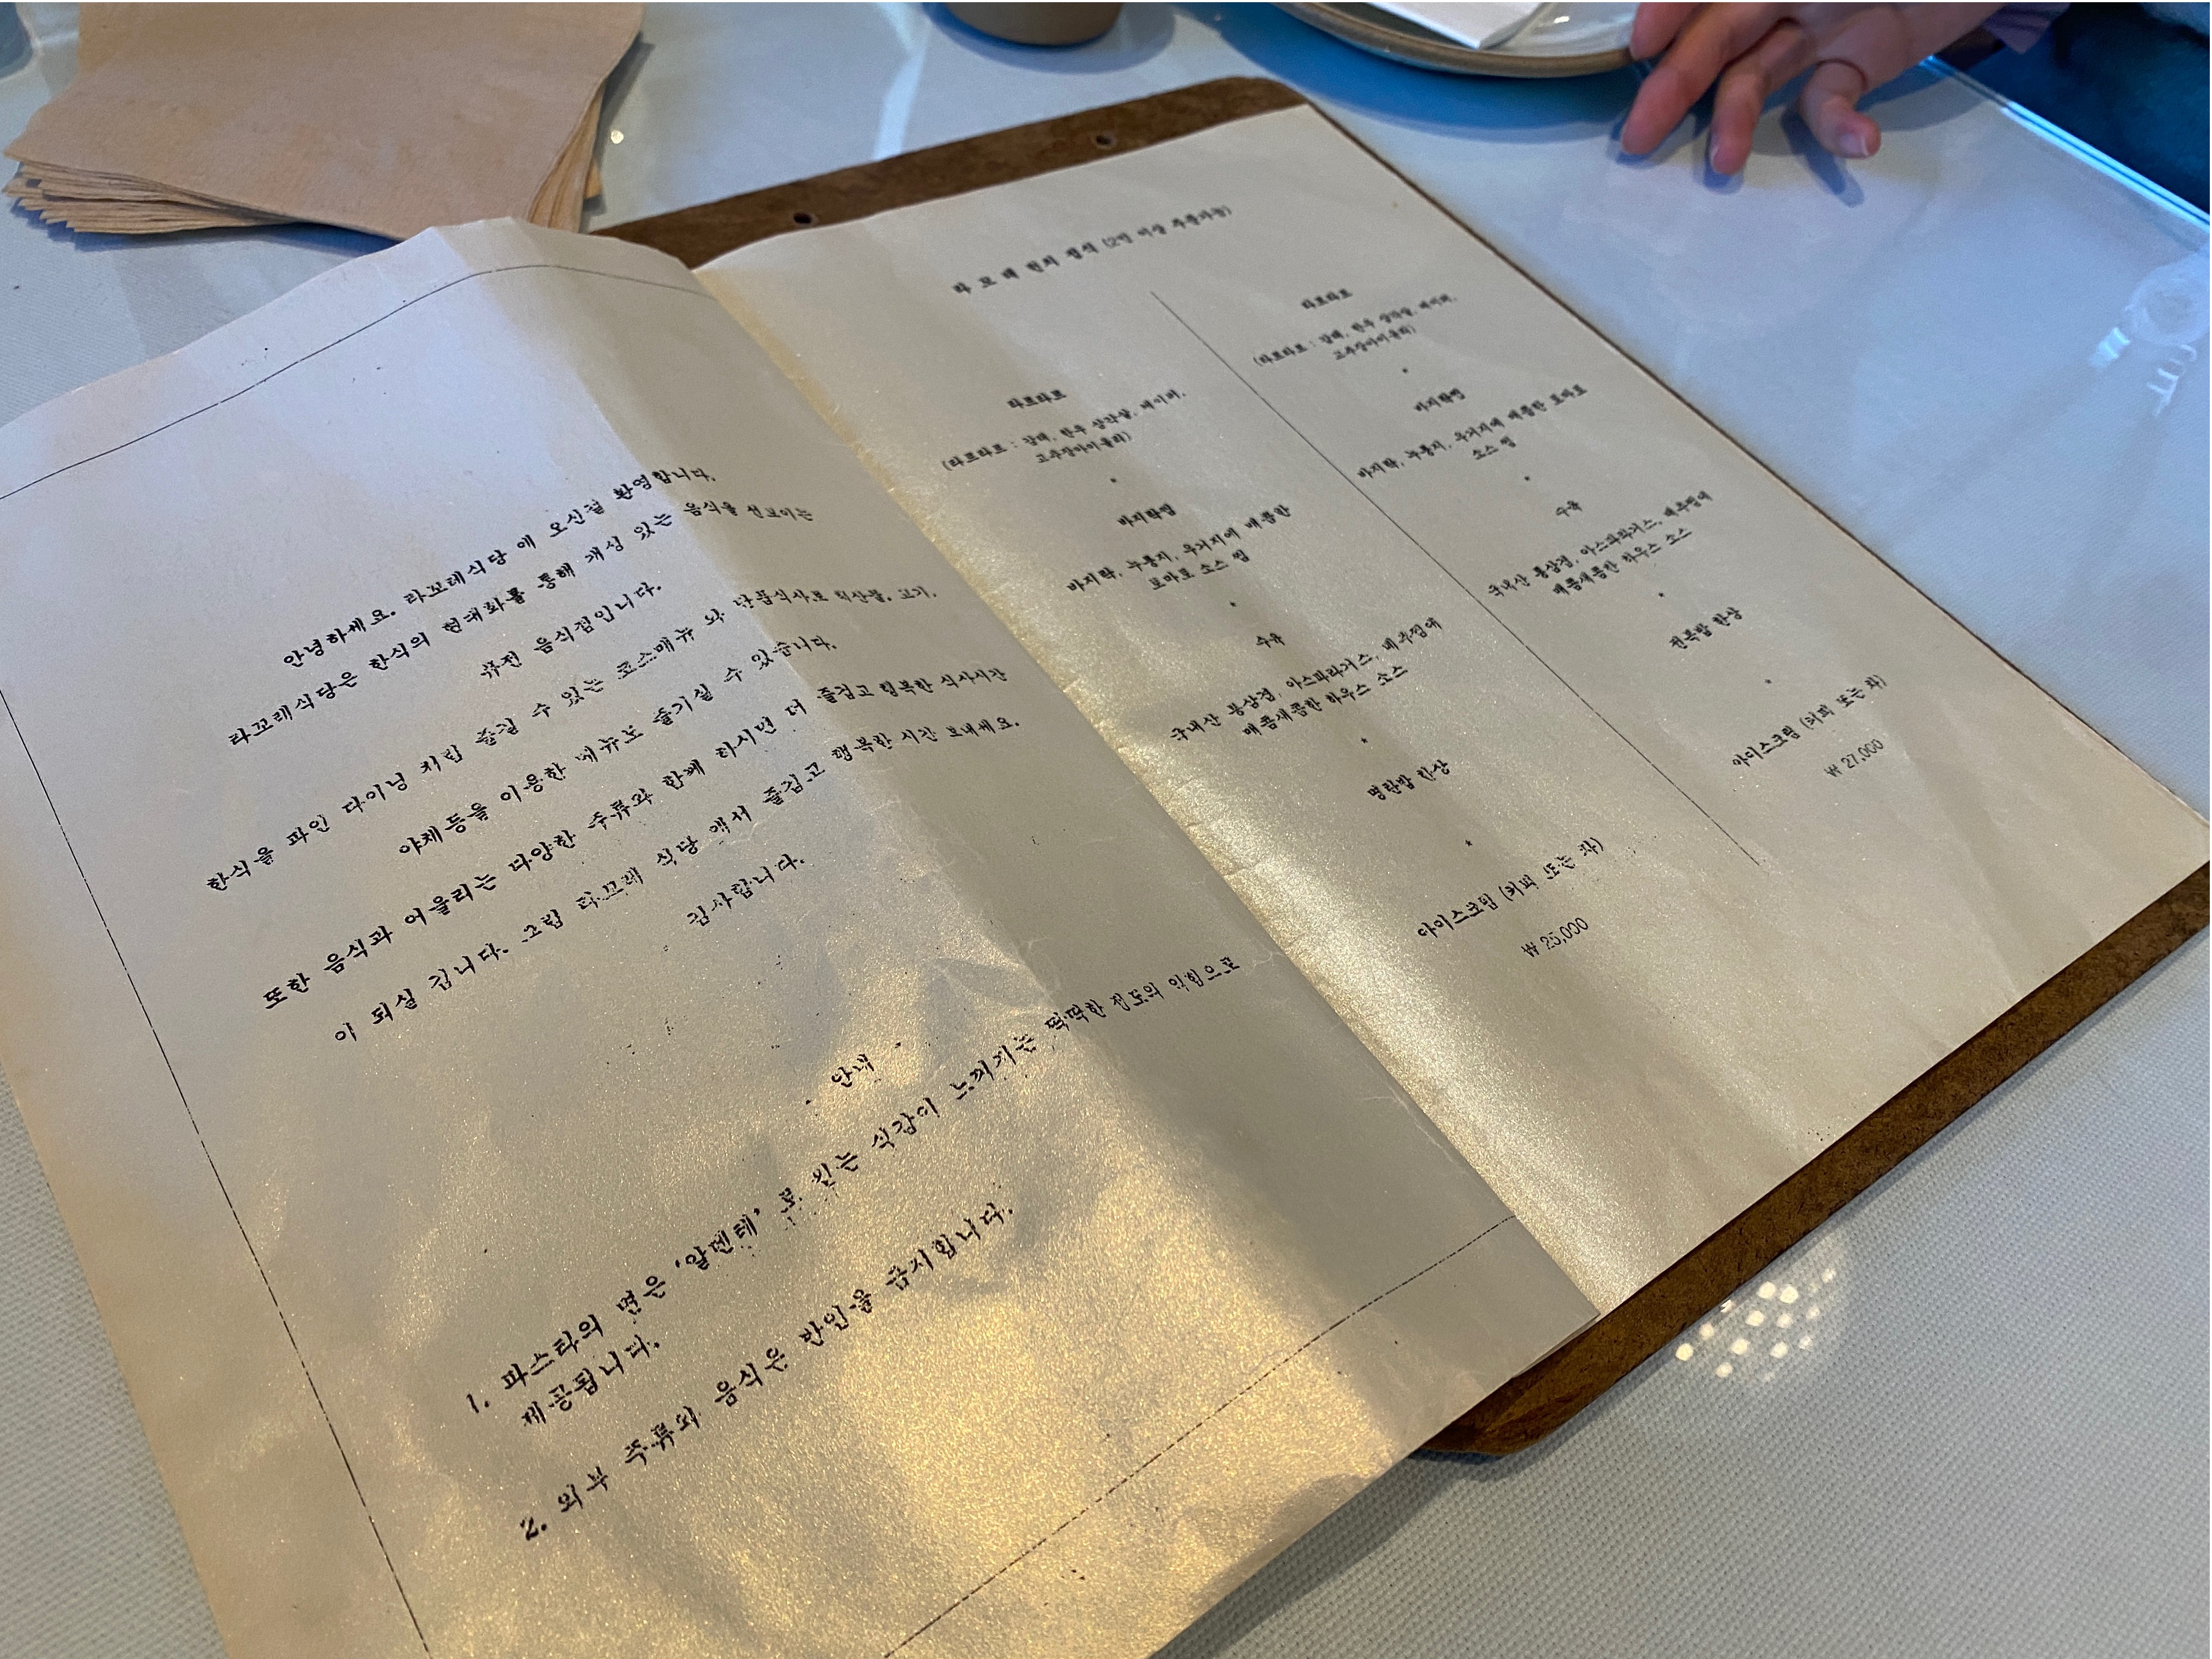 안녕하세요. 라꼬레식당 에 오신걸 환영합니다.
라꼬레식당은 한식의 현대화를 통해 개성 있는 음식을 선보이는
퓨전 음식점입니다.
한식을 파인 다이닝 처럼 즐길 수 있는 코스메뉴 와 단품식사로 해산물, 고기,
야채등을 이용한 메뉴도 즐기실 수 있습니다.
또한 음식과 어울리는 다양한 주류와 함께 하시면 더 즐겁고 행복한 식사시간
이 되실 겁니다. 그럼 라꼬레 식당 에서 즐겁고 행복한 시간 보내세요.
감사합니다.
안내
1. 파스타의 면은 '알덴테' 로 씹는 식감이 느껴지는 딱딱한 정도의 익힘으로
제공됩니다.
2. 외부 주류와 음식은 반입을 금지합니다.
라 꼬 레 한끼 정식 (2인 이상 주문가능)
타르타르
(타르타르 : 감태, 한우 삼각살, 케이퍼,
고추장아이올리)
*
바지락찜
바지락, 누룽지, 우거지에 매콤한
토마토 소스 찜
*
수육
국내산 통삼겹, 아스파라거스, 배추찜에
매콤새콤한 하우스 소스
*
명란밥 한상
*
아이스크림 (커피 또는 차)
₩ 25,000
타르타르
(타르타르 : 감태, 한우 삼각살, 케이퍼,
고추장아이올리)
*
바지락찜
바지락, 누룽지, 우거지에 매콤한 토마토
소스 찜
*
수육
국내산 통삼겹, 아스파라거스, 배추찜에
매콤새콤한 하우스 소스
*
전복밥 한상
*
아이스크림 (커피 또는 차)
₩ 27,000